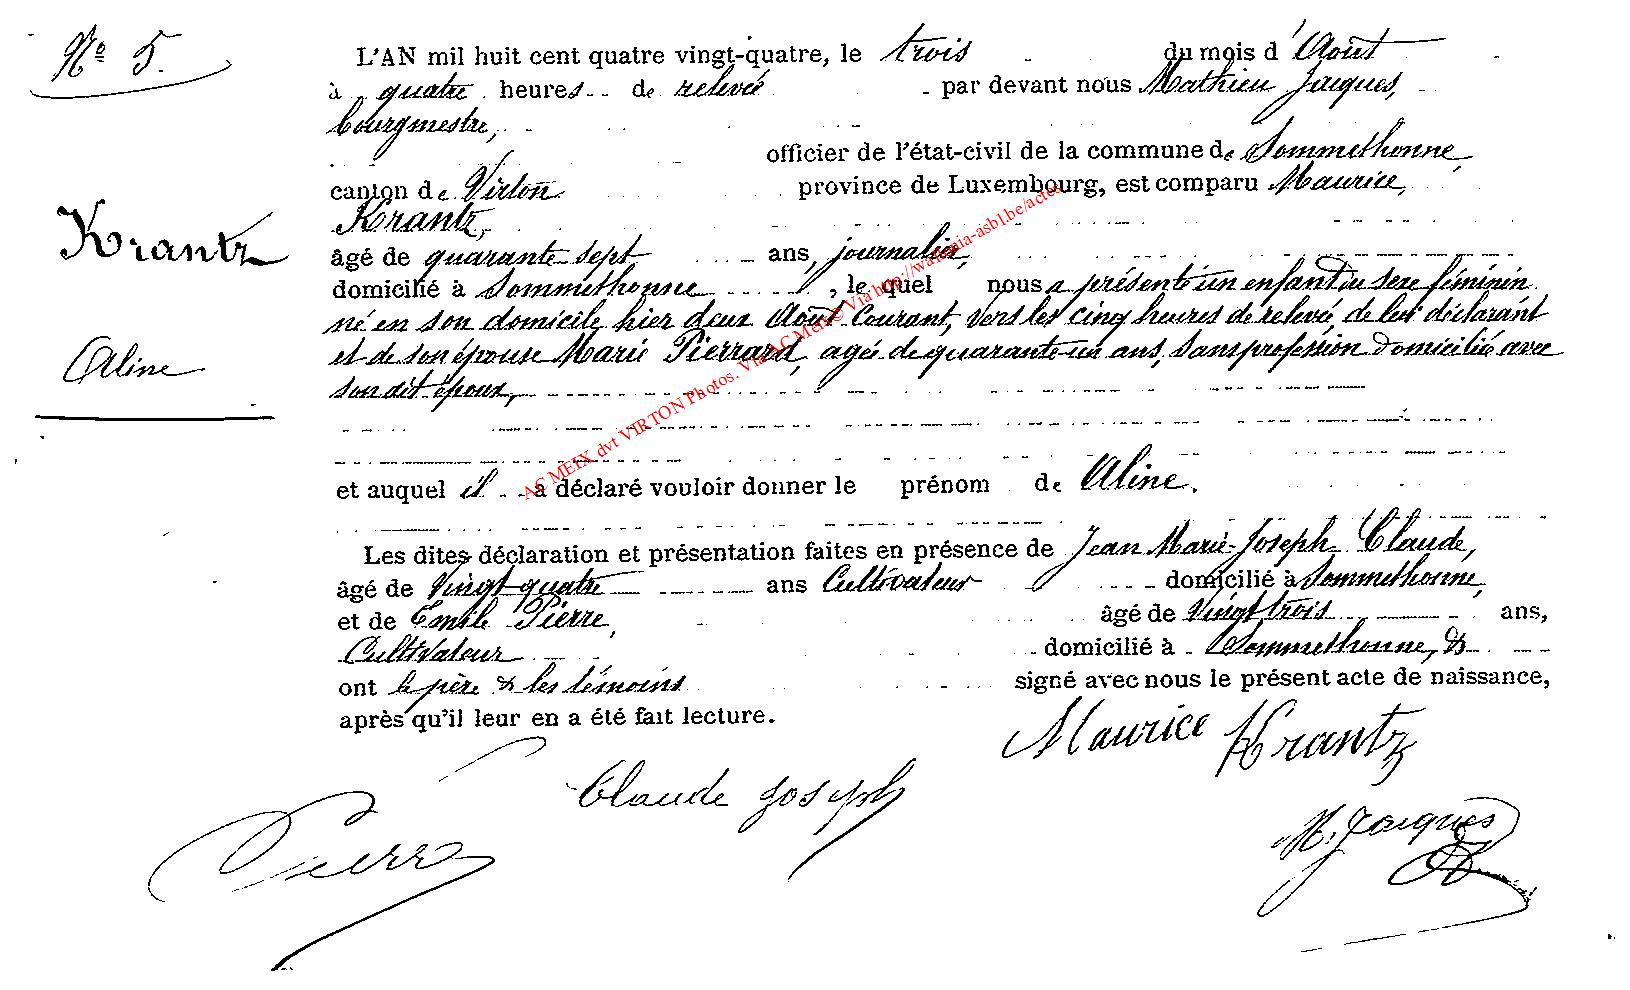 Nº 5.
L'AN mil huit cent quatre vingt-quatre, le trois du mois d'Août
à quatre heures de relevée par devant nous Mathieu Jacques,
bourgmestre,
officier de l'état-civil de la commune de Sommethonne,
canton de Virton province de Luxembourg, est comparu Maurice,
Krantz,
Krantz
âgé de quarante-sept ans, journalier,
domicilié à Sommethonne, le quel nous a présenté un enfant du sexe féminin
né en son domicile hier deux Août Courant, vers les cinq heures de relevée, de lui déclarant
et de son épouse Marie Pierrard, agée de quarante-un ans, sans profession domiciliée avec
Aline
son dit époux,
et auquel il a déclaré vouloir donner le prénom de Aline.
Les dites déclaration et présentation faites en présence de Jean Marie-Joseph Claude,
âgé de Vingt-quatre ans Cultivateur domicilié à Sommethonne,
et de Emile Pierre, âgé de vingt trois ans,
Cultivateur domicilié à Sommethonne, &
ont le père & les témoins signé avec nous le présent acte de naissance,
après qu'il leur en a été fait lecture.
Maurice Krantz
Claude Joseph
M. Jacques
Pierre
AC MEIX dvt VIRTON Photos. Via AC Meix © Via http://wallonia-asbl.be/actes